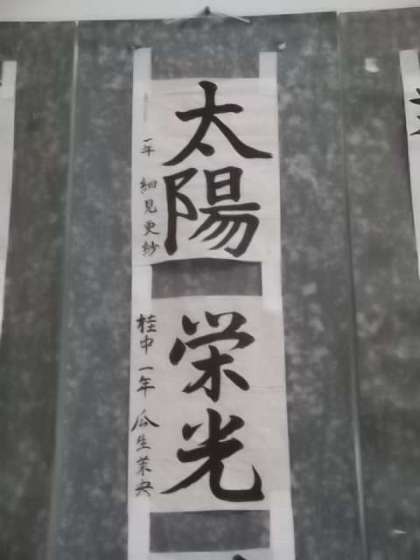 太陽
一年 細見更紗
栄光
桂中一年 瓜生茉央